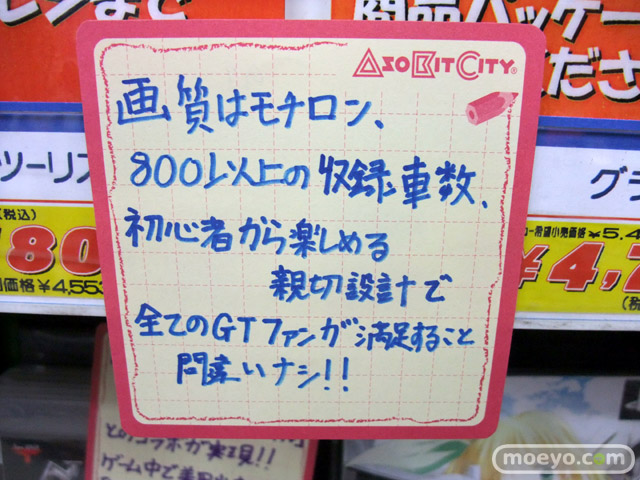 商品パッケー
ださ
ASOBITCITY
画質はモチロン、
800以上の収録車数、
初心者から楽しめる
親切設計で
全てのGTファンが満足すること
間違いナシ!!
ツーリス
(税込)
80
価格¥4,553
グラ
希望小売価格¥5,4
¥4,
(税
とのコラボが実現!!
ゲーム中で
moeyo.com